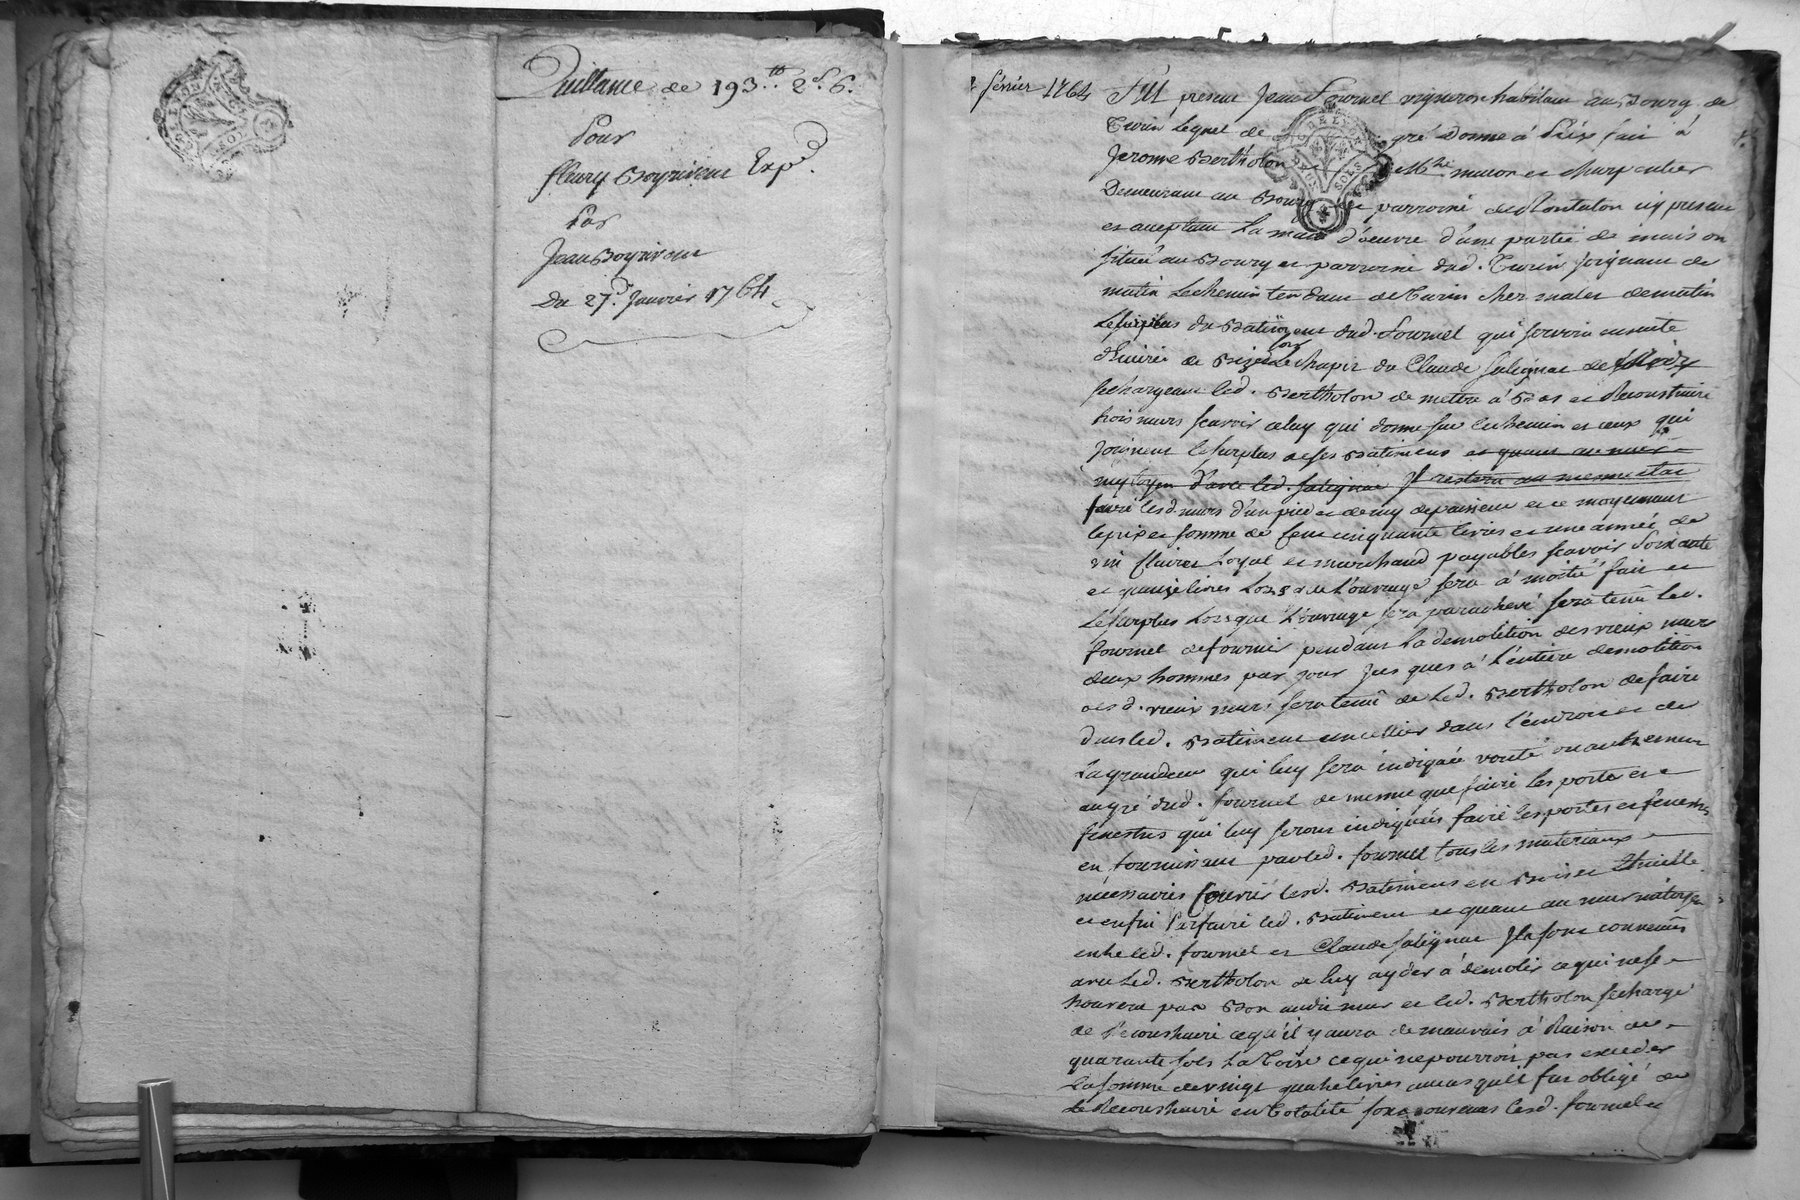 Quittance de 193.tt 2.s 6.
Pour
fleury Boyriveut Expd.
Par
Jean Boyriveut
Du 27.e Janvier 1764
février 1764
Fut present Jean Fournel vigneron habitant au Bourg de
Turin Lequel de gré Donne á Prix fait á
Jerome Bertholon Mtre masson et charpentier
Demeurant au Bourg et parroisse de Rontalon icy present
et aceptant La main d'oeuvre d'une partie de maison
située au Bourg et parroisse dud. Turin joignant de
matin Lechemin tendant de Turin de matin
Lesurplus du Batiment dud. Fournel qui servoit ensuite
de Bize Lechapit du Claude Salignat de
sechargeant led. Bertholon de metre á Bas et Reconstruire
trois murs scavoir celuy qui donne sur Lechemin et ceux qui
Joignent Lesurplus deses Batiments et quant au mur
mytoyen d'avec led. Salignat Jl restera au mesme état
faire lesd murs d'un pied et demy depaisseur et ce moyennant
leprix et somme de Cent cinquante livres et une année de
vin Loyal et marchand payables scavoir Soixante
et quinze livres Lorsque L'ouvrage sera á moitié fait et
Lesurplus Lorsque L'ouvrage sera parachevé sera tenû led.
fournel defournir pendant La demolition des vieux murs
deux hommes par jour Jusques á L'entiere demolition
desd. vieux murs sera tenû de Led. Bertholon defaire
dans led. Batiment un cellier dans l'endroit et de
La grandeur qui luy sera indiquée vouté ou autrement
augré dud. fournel de mesme que faire les portes et
fenestres qui luy seront indiquées faire les portes et fenestres
en fournissant par led. fournel tous les materiaux
nécessaires Couvrir lesd. Batiments en Boiser thuille
et enfin Parfaire led. Batiment et quant au mur mitoyen
entre led. fournel et Claude Salignat Jls sont convenûs
avec Led. Bertholon de luy ayder á demolir ce qui nese
trouvera pas Bon audit mur et led. Bertholon secharge
de Reconstruire cequ'il y aura de mauvais á Raison de
quarante sols La Toise cequi nepourroit pas exceder
La somme devingt quatre livres aucas qu'il fut obligé de
Le Reconstruire en Totalité sont convenus lesd. fournel et